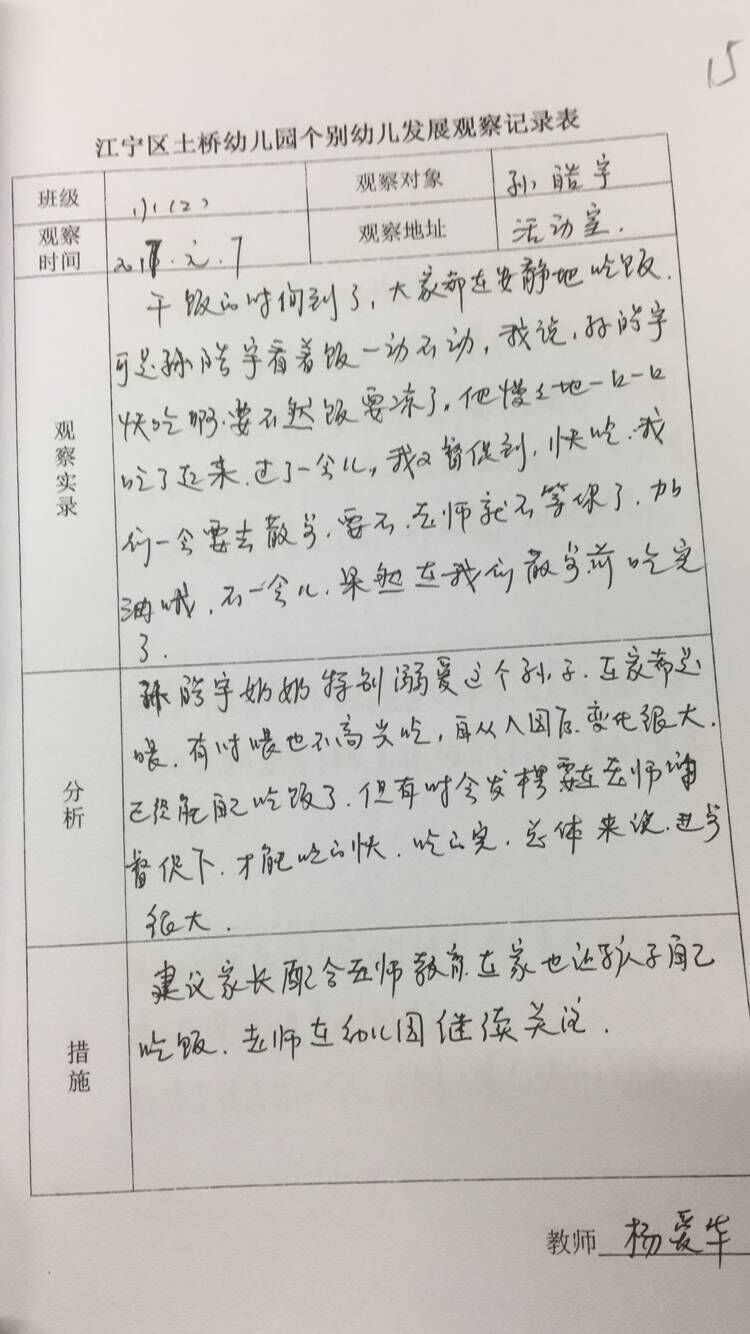 15
江宁区土桥幼儿园个别幼儿发展观察记录表
班级 小(2) 观察对象 孙皓宇
观察时间 观察地址 活动室.
观察实录
干饭的时间到了,大家都在安静地吃饭.
可是孙皓宇看着饭一动不动,我说,孙皓宇
快吃啊.要不然饭要凉了,他慢々地一口一口
吃了起来.过了一会儿,我又督促到,快吃.我
们一会要去散步.要不.老师就不等你了.加
油哦.不一会儿.果然在我们散步前吃完
了.
分析
孙皓宇奶奶特别溺爱这个孙子.在家都是
喂.有时喂也不高兴吃,自从入园后.变化很大.
已经能自己吃饭了.但有时会发楞要在老师
督促下.才能吃的快.吃的完.总体来说.进步
很大.
措施
建议家长配合老师教育.在家也让孩子自己
吃饭.老师在幼儿园继续关注.
教师 杨爱华